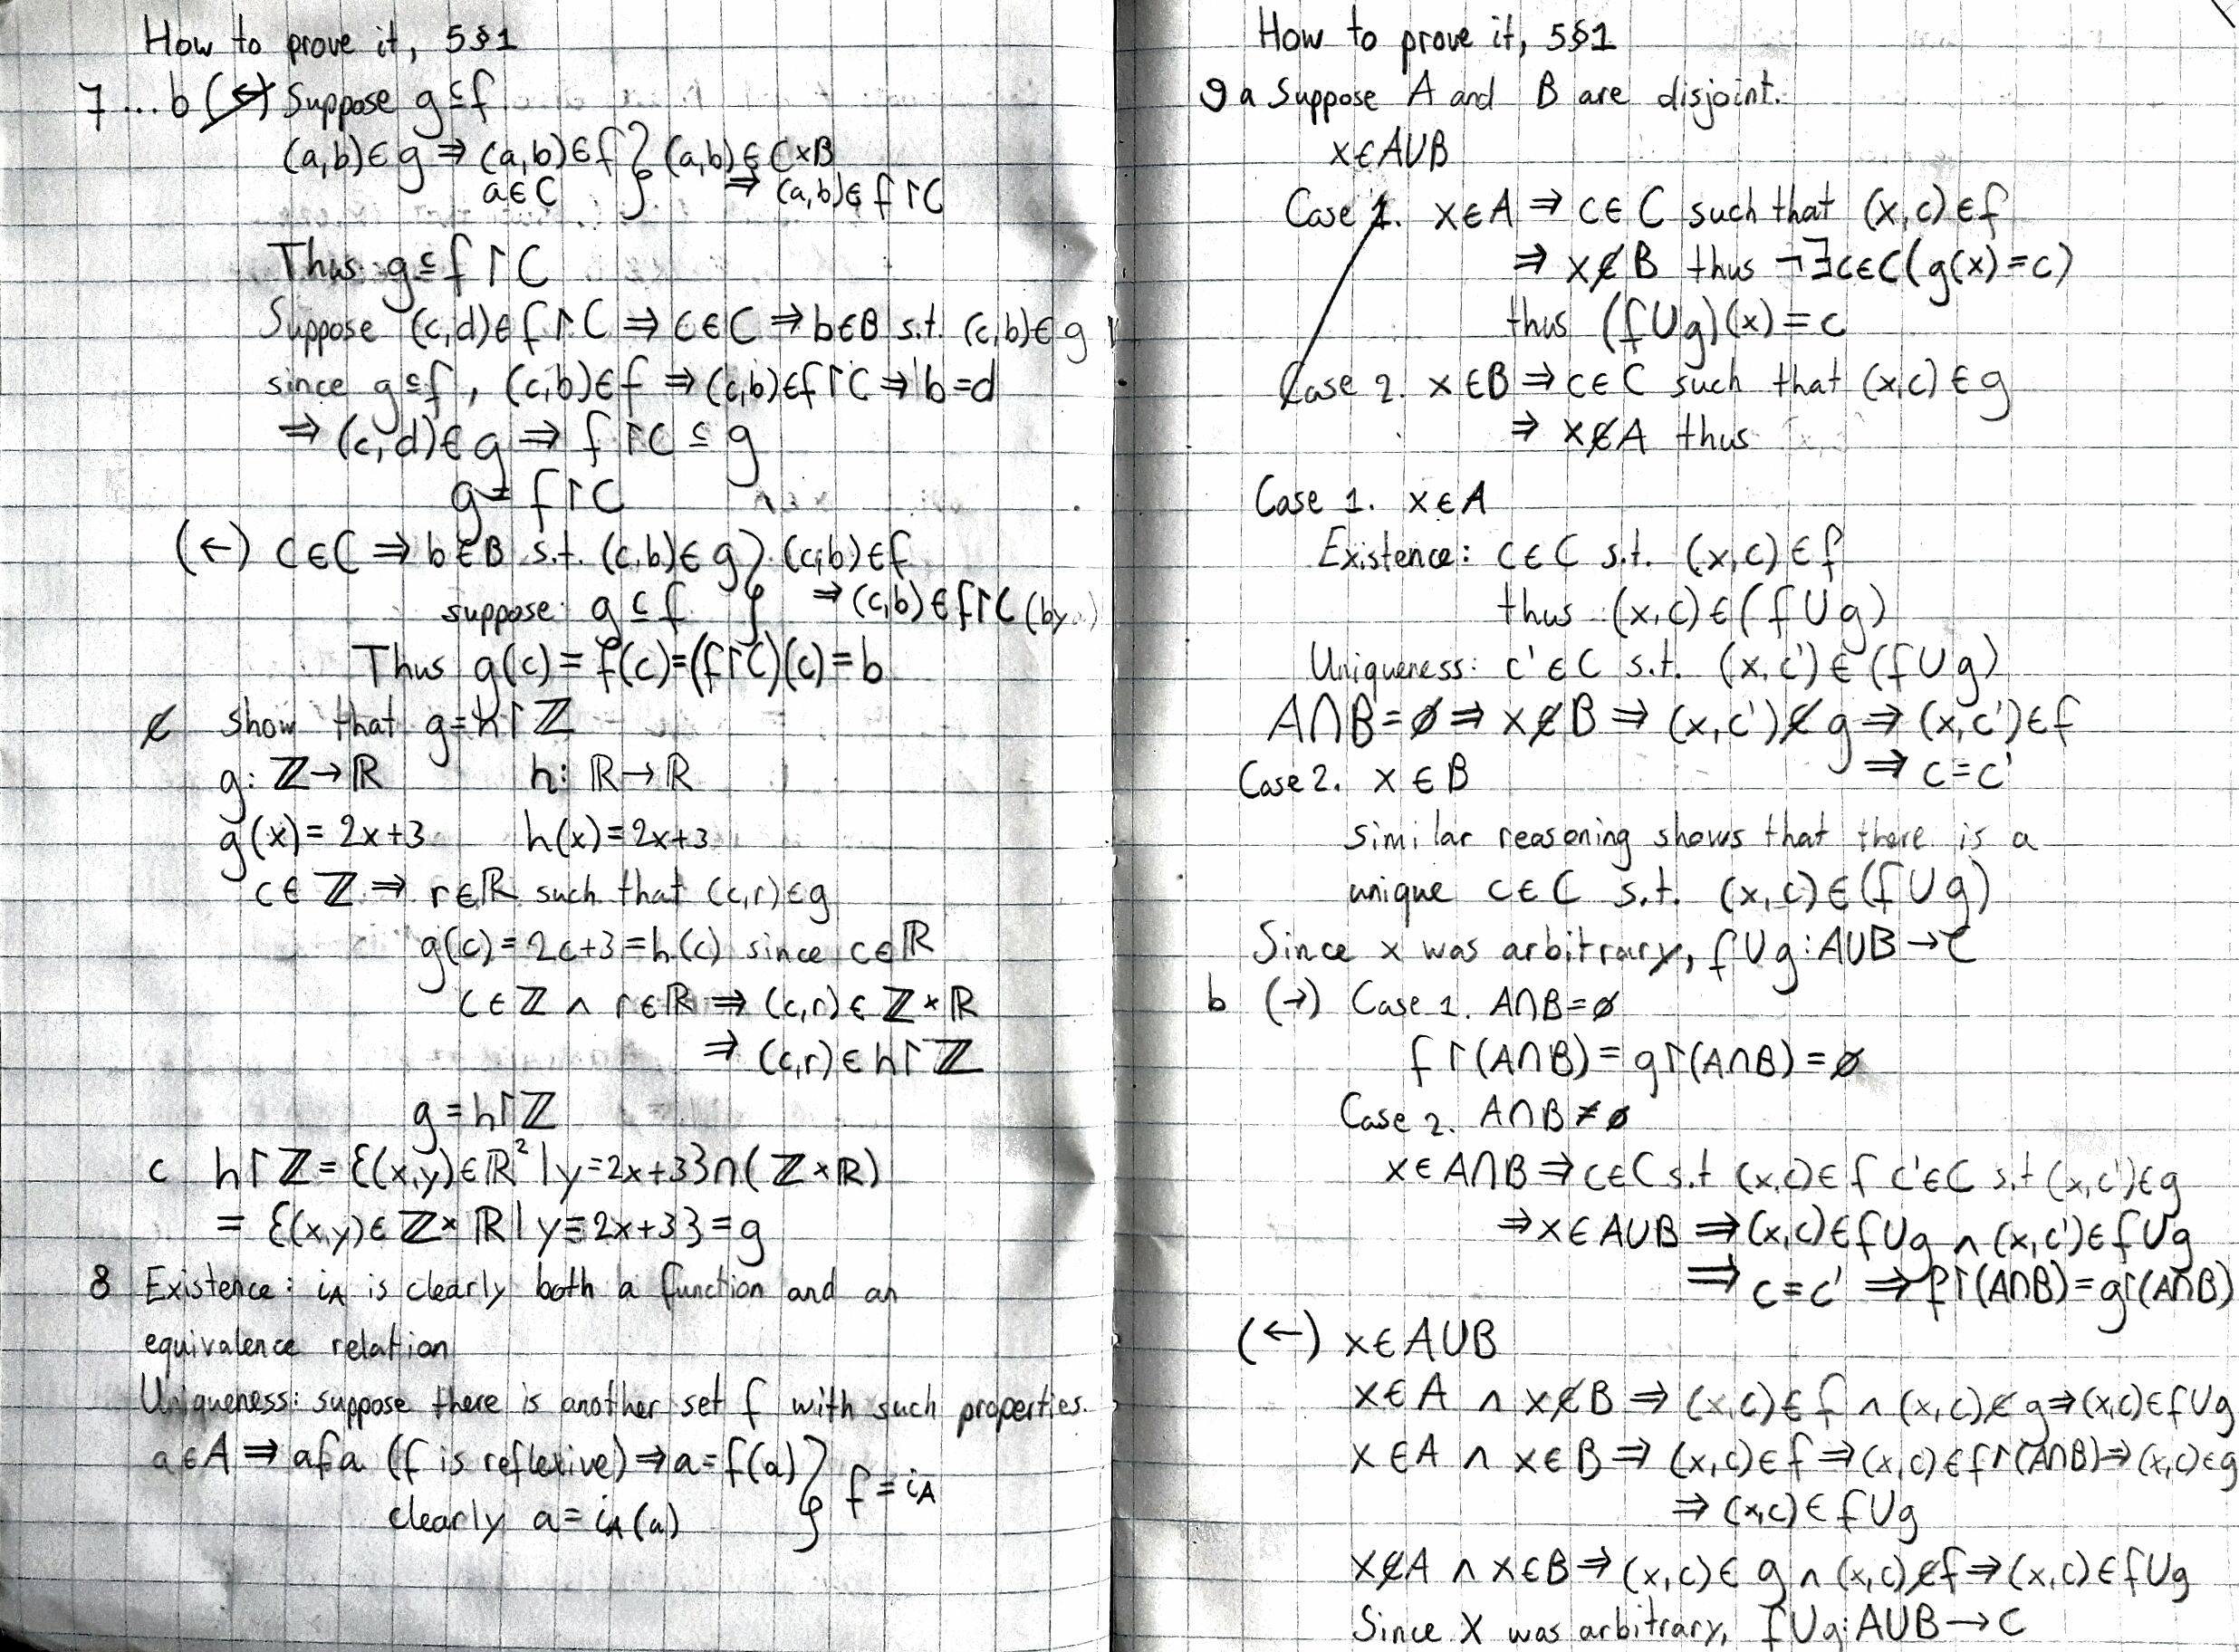 How to prove it, 5§1
7 ... b (↔) Suppose g ⊆ f
(a,b) ∈ g ⇒ (a,b) ∈ f } (a,b) ∈ C×B
a ∈ C ⇒ (a,b) ∈ f↾C
Thus g ⊆ f↾C
Suppose (c,d) ∈ f↾C ⇒ c ∈ C ⇒ b ∈ B s.t. (c,b) ∈ g
since g ⊆ f, (c,b) ∈ f ⇒ (c,b) ∈ f↾C ⇒ b = d
⇒ (c,d) ∈ g ⇒ f↾C ⊆ g
g = f↾C
(←) c ∈ C ⇒ b ∈ B s.t. (c,b) ∈ g } (c,b) ∈ f
suppose: g ⊆ f ⇒ (c,b) ∈ f↾C (by
Thus g(c) = f(c) = (f↾C)(c) = b
c show that g = h↾ℤ
g: ℤ → ℝ h: ℝ → ℝ
g(x) = 2x+3 h(x) = 2x+3
c ∈ ℤ ⇒ r ∈ ℝ such that (c,r) ∈ g
g(c) = 2c+3 = h(c) since c ∈ ℝ
c ∈ ℤ ∧ r ∈ ℝ ⇒ (c,r) ∈ ℤ×ℝ
⇒ (c,r) ∈ h↾ℤ
g = h↾ℤ
c h↾ℤ = {(x,y) ∈ ℝ² | y = 2x+3} ∩ (ℤ×ℝ)
= {(x,y) ∈ ℤ×ℝ | y = 2x+3} = g
8 Existence: i_A is clearly both a function and an
equivalence relation
Uniqueness: suppose there is another set f with such properties.
a ∈ A ⇒ afa (f is reflexive) ⇒ a = f(a) } f = i_A
clearly a = i_A(a)
How to prove it, 5§1
9 a Suppose A and B are disjoint.
x ∈ A∪B
Case 1. x ∈ A ⇒ c ∈ C such that (x,c) ∈ f
⇒ x ∉ B thus ¬∃c∈C(g(x) = c)
thus (f∪g)(x) = c
Case 2. x ∈ B ⇒ c ∈ C such that (x,c) ∈ g
⇒ x ∉ A thus
Case 1. x ∈ A
Existence: c ∈ C s.t. (x,c) ∈ f
thus (x,c) ∈ (f∪g)
Uniqueness: c' ∈ C s.t. (x,c') ∈ (f∪g)
A∩B = ∅ ⇒ x ∉ B ⇒ (x,c') ∉ g ⇒ (x,c') ∈ f
⇒ c = c'
Case 2. x ∈ B
similar reasoning shows that there is a
unique c ∈ C s.t. (x,c) ∈ (f∪g)
Since x was arbitrary, f∪g: A∪B → C
b (→) Case 1. A∩B = ∅
f↾(A∩B) = g↾(A∩B) = ∅
Case 2. A∩B ≠ ∅
x ∈ A∩B ⇒ c ∈ C s.t (x,c) ∈ f c' ∈ C s.t (x,c') ∈ g
⇒ x ∈ A∪B ⇒ (x,c) ∈ f∪g ∧ (x,c') ∈ f∪g
⇒ c = c' ⇒ f↾(A∩B) = g↾(A∩B)
(←) x ∈ A∪B
x ∈ A ∧ x ∉ B ⇒ (x,c) ∈ f ∧ (x,c) ∉ g ⇒ (x,c) ∈ f∪g
x ∈ A ∧ x ∈ B ⇒ (x,c) ∈ f ⇒ (x,c) ∈ f↾(A∩B) ⇒ (x,c) ∈ g
⇒ (x,c) ∈ f∪g
x ∉ A ∧ x ∈ B ⇒ (x,c) ∈ g ∧ (x,c) ∉ f ⇒ (x,c) ∈ f∪g
Since x was arbitrary, f∪g: A∪B → C